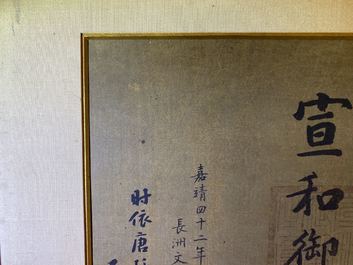 宣和御
嘉靖四十二年
長洲文
时依唐